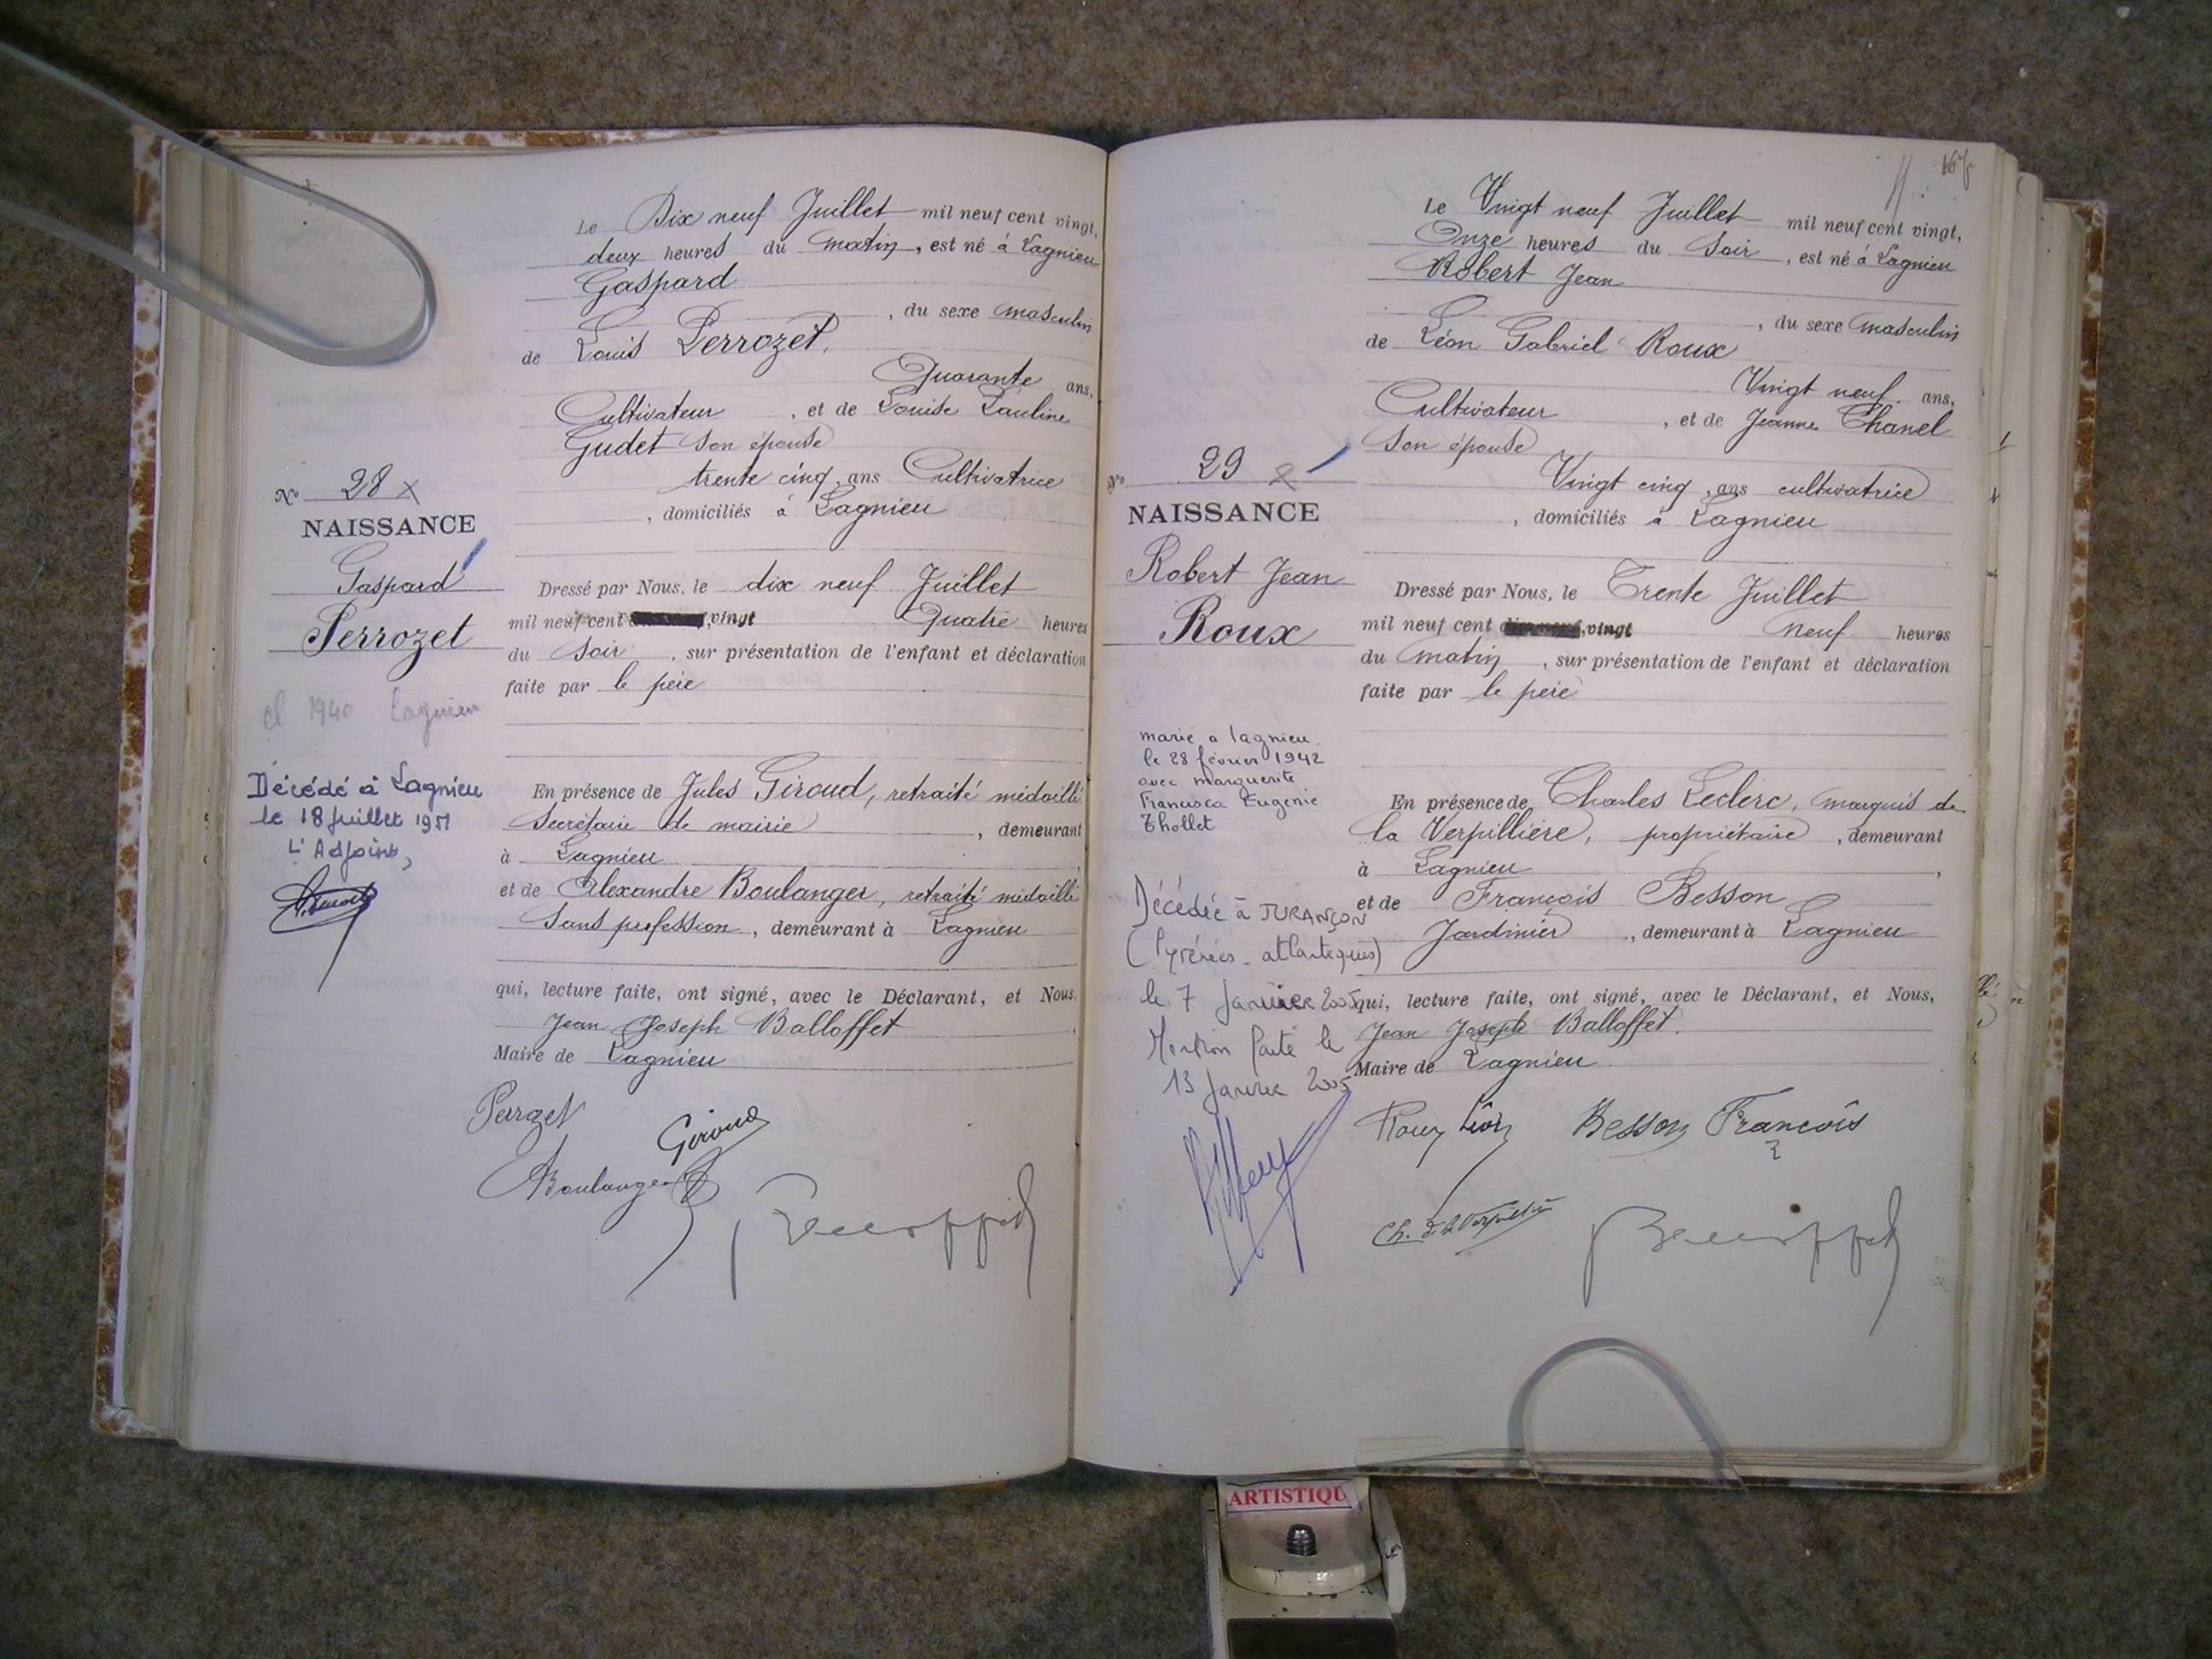 Le Dix neuf Juillet mil neuf cent vingt,
deux heures du matin, est né à Lagnieu
Gaspard
, du sexe masculin
de Louis Perrozet,
Quarante ans,
Cultivateur, et de Louise Pauline
Gudet son épouse
trente cinq ans Cultivatrice
, domiciliés à Lagnieu
Nº 28 x
NAISSANCE
Gaspard
Perrozet
cl 1940 Lagnieu
Décédé à Lagnieu
le 18 Juillet 1951
L'Adjoint,
Dressé par Nous, le dix neuf Juillet
mil neuf cent vingt Quatre heures
du soir, sur présentation de l'enfant et déclaration
faite par le père
En présence de Jules Giroud, retraité médaillé
Secrétaire de mairie, demeurant
à Lagnieu
et de Alexandre Boulanger, retraité médaillé
Sans profession, demeurant à Lagnieu
qui, lecture faite, ont signé, avec le Déclarant, et Nous,
Jean Joseph Balloffet
Maire de Lagnieu
Perrozet
Giroud
Boulanger
Le Vingt neuf Juillet mil neuf cent vingt,
Onze heures du Soir, est né à Lagnieu
Robert Jean
, du sexe masculin
de Léon Gabriel Roux
Vingt neuf ans,
Cultivateur, et de Jeanne Chanel
Son épouse
Vingt cinq, ans cultivatrice
, domiciliés à Lagnieu
Nº 29
NAISSANCE
Robert Jean
Roux
marié à lagnieu
le 28 février 1942
avec marguerite
Francisca Eugénie
Thollet
Décédée à JURANÇON
(Pyrénées-atlantiques)
le 7 Janvier 2005
Mention faite le
13 Janvier 2005
Dressé par Nous, le Trente Juillet
mil neuf cent vingt neuf heures
du matin, sur présentation de l'enfant et déclaration
faite par le père
En présence de Charles Leclerc, marquis de
la Verpillière, propriétaire, demeurant
à Lagnieu,
et de François Besson
Jardinier, demeurant à Lagnieu
qui, lecture faite, ont signé, avec le Déclarant, et Nous,
Jean Joseph Balloffet.
Maire de Lagnieu
Roux Léon Besson François
Ch. de la Verpillière
ARTISTIQU